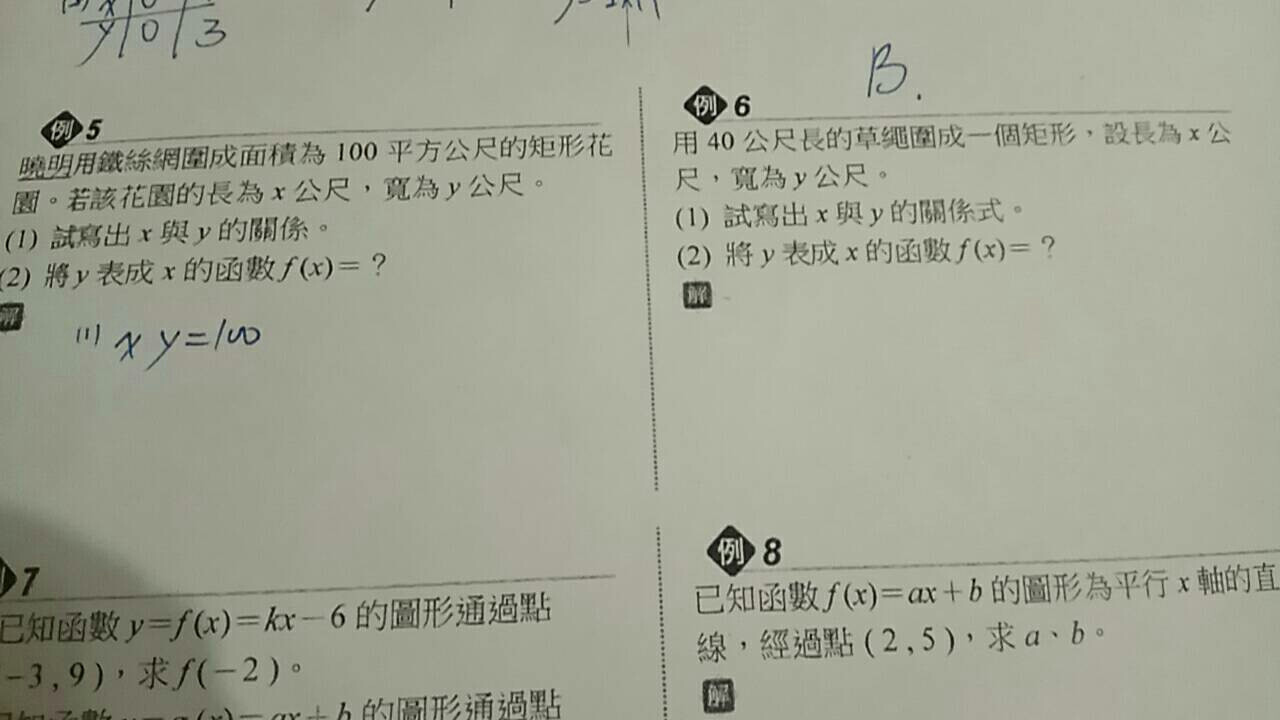 y 0 3
B.
例 5
曉明用鐵絲網圍成面積為 100 平方公尺的矩形花
園。若該花園的長為 x 公尺，寬為 y 公尺。
(1) 試寫出 x 與 y 的關係。
(2) 將 y 表成 x 的函數 f(x)=？
解
(1) xy=100
例 6
用 40 公尺長的草繩圍成一個矩形，設長為 x 公
尺，寬為 y 公尺。
(1) 試寫出 x 與 y 的關係式。
(2) 將 y 表成 x 的函數 f(x)=？
解
7
已知函數 y=f(x)=kx−6 的圖形通過點
−3,9)，求 f(−2)。
的圖形通過點
例 8
已知函數 f(x)=ax+b 的圖形為平行 x 軸的直
線，經過點 (2,5)，求 a、b。
解